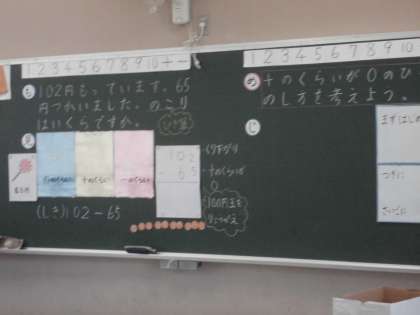 1 2 3 4 5 6 7 8 9 10 + -
も 102円もっています。65
円つかいました。のこり
はいくらですか。
ひき算
百のくらい 十のくらい 一のくらい
102
- 65
くり下がり
十のくらいが
0
100円玉を
(しき)102-65
1 2 3 4 5 6 7 8 9 10
め 十のくらいが0のひ
のし方を考えよう。
じ
まずはじめ
つぎに
さいご